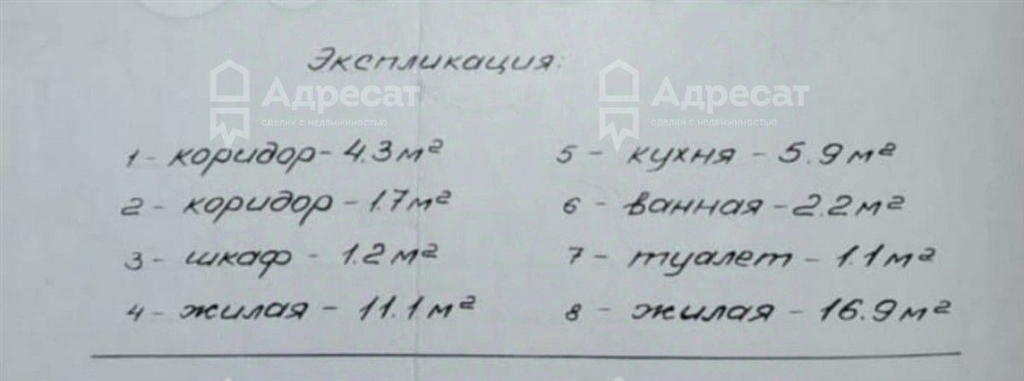 Экспликация:
Адресат
сделки с недвижимостью
Адресат
сделки с недвижимостью
1 - коридор - 4.3 м²
2 - коридор - 1.7 м²
3 - шкаф - 1.2 м²
4 - жилая - 11.1 м²
5 - кухня - 5.9 м²
6 - ванная - 2.2 м²
7 - туалет - 1.1 м²
8 - жилая - 16.9 м²